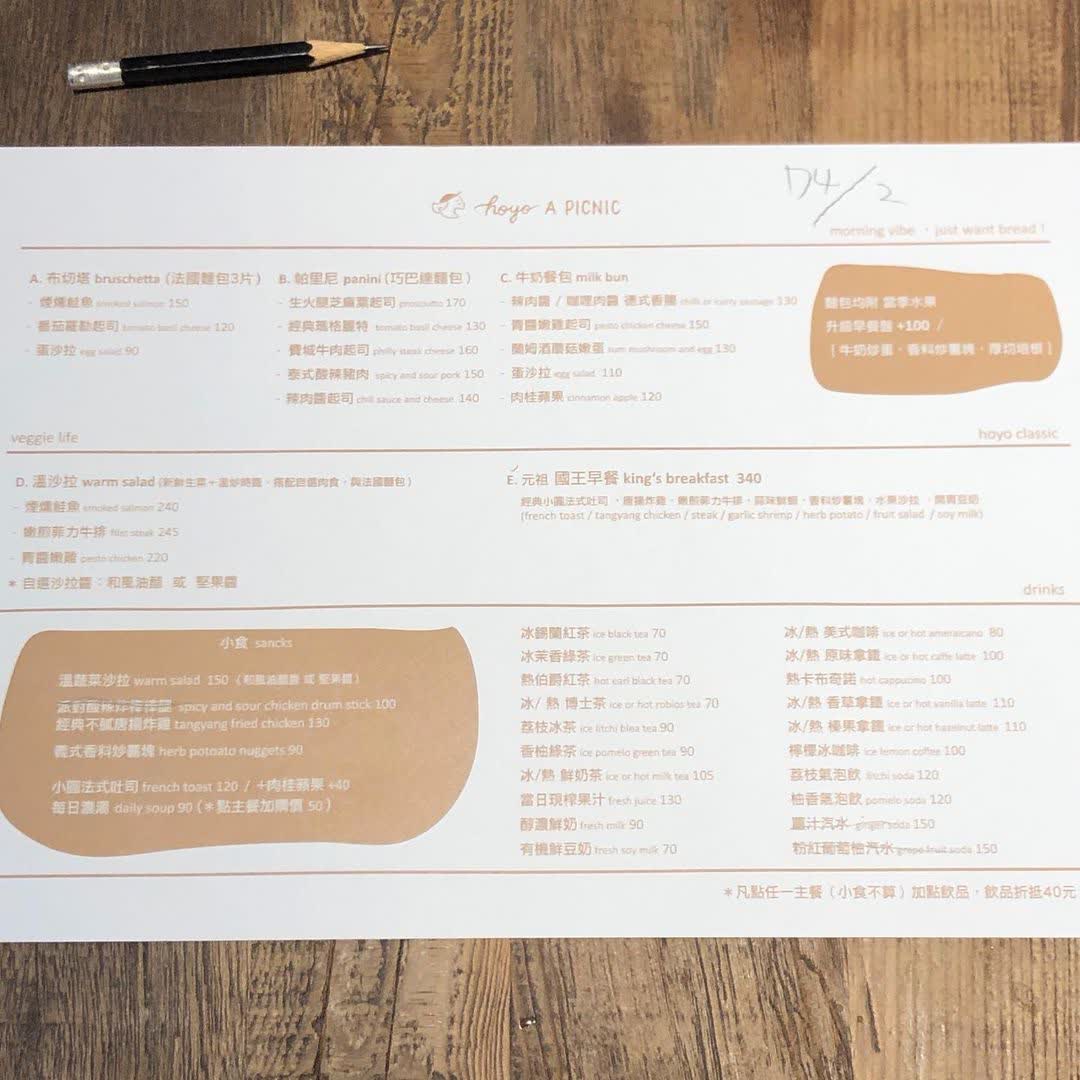 hoyo A PICNIC
D4/2
morning vibe ・ just want bread !
A. 布切塔 bruschetta (法國麵包3片)
- 煙燻鮭魚 smoked salmon 150
- 番茄羅勒起司 tomato basil cheese 120
- 蛋沙拉 egg salad 90
B. 帕里尼 panini (巧巴達麵包)
- 生火腿芝麻葉起司 prosciutto 170
- 經典瑪格麗特 tomato basil cheese 130
- 費城牛肉起司 philly steak cheese 160
- 泰式酸辣豬肉 spicy and sour pork 150
- 辣肉醬起司 chili sauce and cheese 140
C. 牛奶餐包 milk bun
- 辣肉醬 / 咖哩肉醬 德式香腸 chilli or curry sausage 130
- 青醬嫩雞起司 pesto chicken cheese 150
- 蘭姆酒蘑菇嫩蛋 rum mushroom and egg 130
- 蛋沙拉 egg salad 110
- 肉桂蘋果 cinnamon apple 120
麵包均附 當季水果
升級早餐盤 +100 /
[ 牛奶炒蛋・香料炒薯塊・厚切培根 ]
veggie life
hoyo classic
D. 溫沙拉 warm salad (新鮮生菜+溫炒時蔬，搭配自選肉食，與法國麵包)
- 煙燻鮭魚 smoked salmon 240
- 嫩煎菲力牛排 fillet steak 245
- 青醬嫩雞 pesto chicken 220
* 自選沙拉醬：和風油醋 或 堅果醬
E. 元祖 國王早餐 king's breakfast 340
經典小圓法式吐司・唐揚炸雞・嫩煎菲力牛排・蒜味鮮蝦・香料炒薯塊・水果沙拉・開胃豆奶
(french toast / tangyang chicken / steak / garlic shrimp / herb potato / fruit salad / soy milk)
drinks
小食 sancks
溫蔬菜沙拉 warm salad 150 (和風油醋醬 或 堅果醬)
派對酸辣炸棒棒腿 spicy and sour chicken drum stick 100
經典不膩唐揚炸雞 tangyang fried chicken 130
義式香料炒薯塊 herb potoato nuggets 90
小圓法式吐司 french toast 120 / +肉桂蘋果 +40
每日濃湯 daily soup 90 (*點主餐加購價 50)
冰錫蘭紅茶 ice black tea 70
冰茉香綠茶 ice green tea 70
熱伯爵紅茶 hot earl black tea 70
冰/ 熱 博士茶 ice or hot robios tea 70
荔枝冰茶 ice litchi blea tea 90
香柚綠茶 ice pomelo green tea 90
冰/熱 鮮奶茶 ice or hot milk tea 105
當日現榨果汁 fresh juice 130
醇濃鮮奶 fresh milk 90
有機鮮豆奶 fresh soy milk 70
冰/熱 美式咖啡 ice or hot ameraicano 80
冰/熱 原味拿鐵 ice or hot caffe latte 100
熱卡布奇諾 hot cappucino 100
冰/熱 香草拿鐵 ice or hot vanilla latte 110
冰/熱 榛果拿鐵 ice or hot hazelnut latte 110
檸檬冰咖啡 ice lemon coffee 100
荔枝氣泡飲 litchi soda 120
柚香氣泡飲 pomelo soda 120
薑汁汽水 ginger soda 150
粉紅葡萄柚汽水 grape fruit soda 150
*凡點任一主餐（小食不算）加點飲品，飲品折抵40元